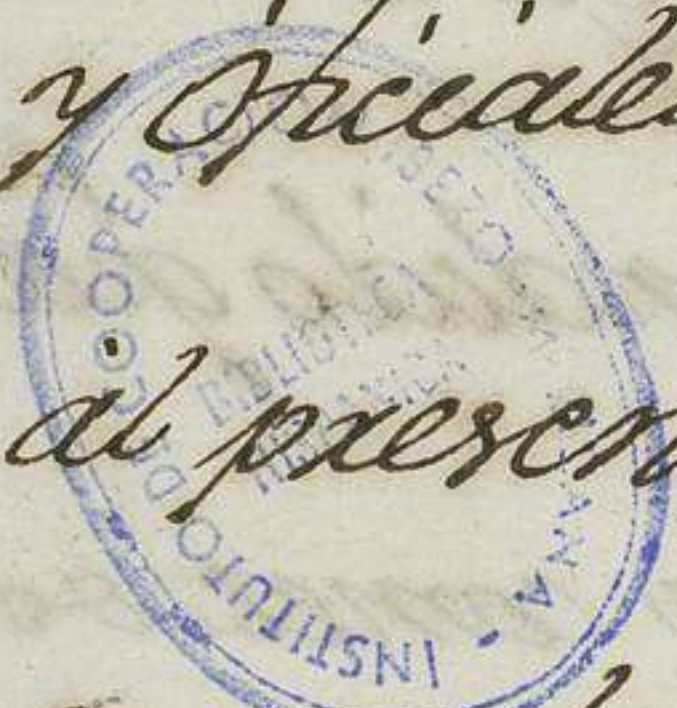 y oficiales
al presen
INSTITUTO DE COOPERACI
BIBLIOTECA
ANA